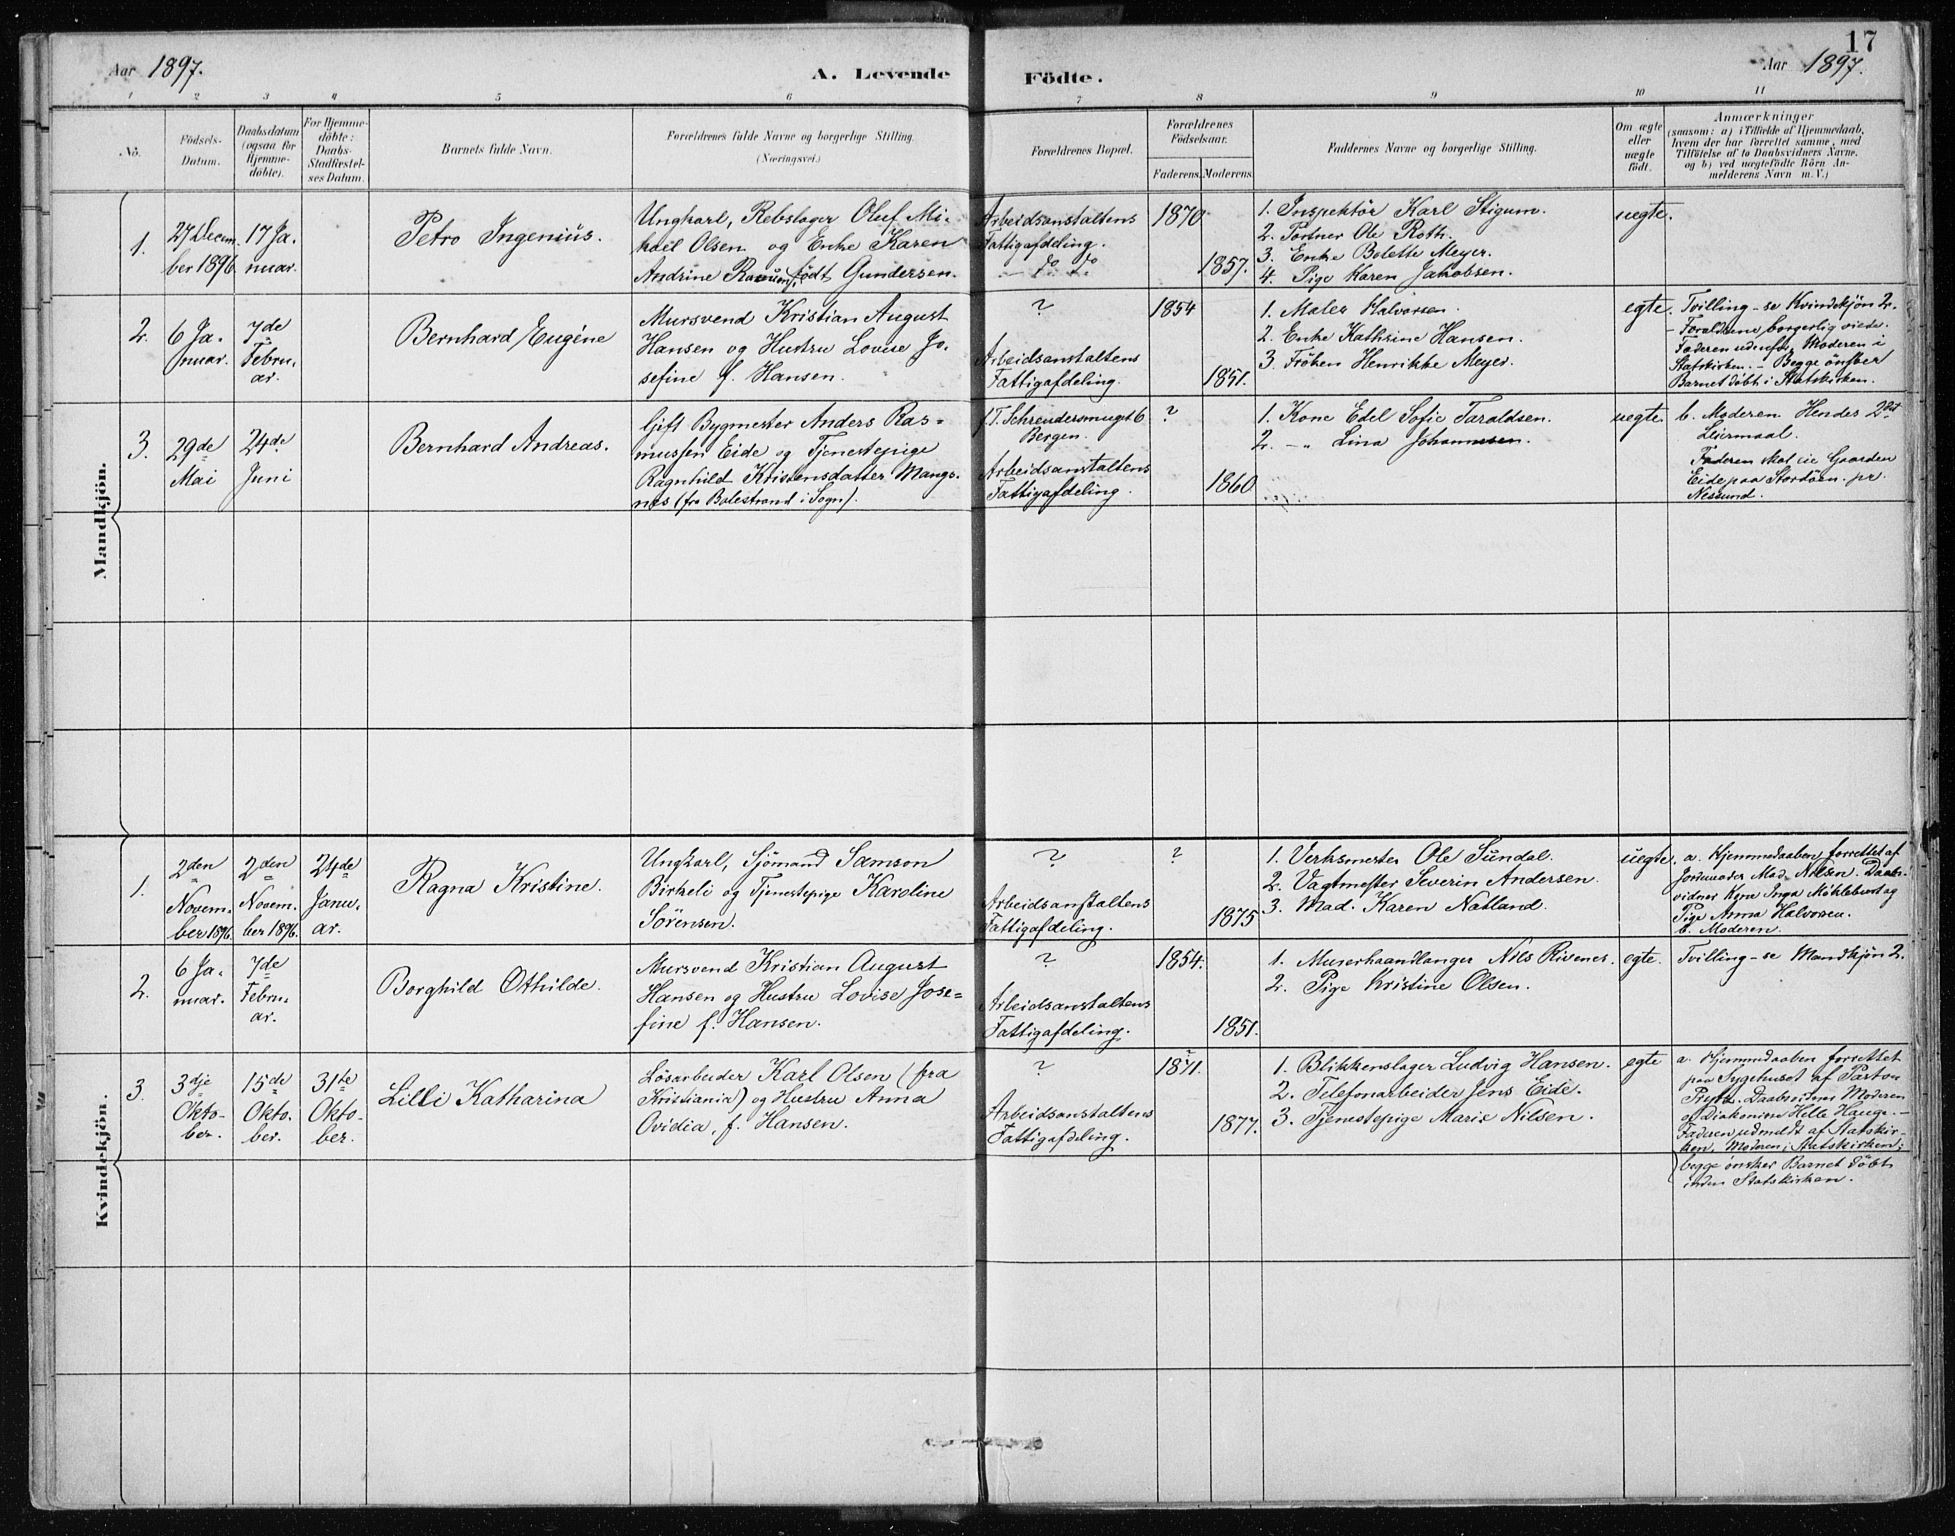 17
Aar 1897.
A. Levende Födte.
Aar 1897.
1 2 3 4 5 6 7 8 9 10 11
No.
Födsels-
Datum.
Daabsdatum
(ogsaa for
Hjemme-
döbte).
For Hjemme-
döbte:
Daabs-
Stadfæstel-
ses Datum.
Barnets fulde Navn.
Forældrenes fulde Navne og borgerlige Stilling.
(Næringsvei.)
Forældrenes Bopæl.
Forældrenes
Födselsaar.
Faderens. Moderens.
Faddernes Navne og borgerlige Stilling.
Om ægte
eller
uægte
födt.
Anmærkninger
(saasom: a) i Tilfælde af Hjemmedaab,
hvem der har forrettet samme, med
Tilföielse af to Daabsvidners Navne,
og b) ved uægtefödte Börn An-
melderens Navn m. V.)
Mandkjön.
1.
27 Decem-
ber 1896
17 Ja-
nuar.
Petro Ingenius.
Ungkarl, Rebslager Oluf Mi-
kael Olsen og Enke Karen
Andrine Rasmussen, født Gundersen.
Arbeidsanstaltens
Fattigafdeling.
do do
1870
1857.
1. Inspektör Karl Stigum.
2. Portner Ole Roth.
3. Enke Bolette Meyer.
4. Pige Karen Jakobsen.
uegte.
2.
6 Ja-
nuar.
7de
Febru-
ar.
Bernhard Eugéne
Mursvend Kristian August
Hansen og Hustru Lovise Jo-
sefine f. Hansen.
?
Arbeidsanstaltens
Fattigafdeling.
1854
1851.
1. Maler Halvorsen.
2. Enke Kathrine Hansen.
3. Fröken Henrikke Meyer.
egte.
Tvilling - se Kvindekjön 2.
- Forældrene borgerlig viede.
Faderen udenfor, Moderen i
Statskirken. - Begge önsker
Barnet döbt i Statskirken.
3.
29de
Mai
24de
Juni
Bernhard Andreas.
Gift Bygmester Anders Ras-
mussen Eide og Tjenestepige
Ragnhild Kristensdatter Mangs-
nes (fra Balestrand i Sogn).
f.T. Schreudersmuget 6
Bergen.
Arbeidsanstaltens
Fattigafdeling.
?
1860
1. Kone Edel Sofie Taraldsen.
2. - " Lina Johannesen.
uegte.
b. Moderen. Hendes 2det
Leiermaal.
Faderen skal eie Gaarden
Eide paa Stordöen. pr.
Nessund.
Kvindekjön.
1.
2den
Novem-
ber 1896.
2den
Novem-
ber 1896.
24de
Janu-
ar.
Ragna Kristine.
Ungkarl, Sjömand Samson
Birkeli og Tjenestepige Karoline
Sörensen.
?
Arbeidsanstaltens
Fattigafdeling.
?
1875
1. Verksmester Ole Sundal.
2. Vagtmester Severin Andersen.
3. Mad. Karen Natland.
uegte.
a. Hjemmedaaben forrettet af
Jordmoder Mad. Nilsen. Daabs-
vidner Kone Inga Möklebust og
Pige Anna Halvorsen.
b. Moderen.
2.
6 Ja-
nuar.
7de
Febru-
ar.
Borghild Othilde.
Mursvend Kristian August
Hansen og Hustru Lovise Jose-
fine f. Hansen.
?
Arbeidsanstaltens
Fattigafdeling.
1854.
1851.
1. Murerhaandlanger Nils Risnes.
2. Pige Kristine Olsen.
egte.
Tvilling - se Mandkjön 2.
3.
3dje
Okto-
ber.
15de
Okto-
ber.
31te
Okto-
ber.
Lilli Katharina
Lösarbeider Karl Olsen (fra
Kristiania) og Hustru Anna
Ovidia, f. Hansen.
?
Arbeidsanstaltens
Fattigafdeling.
?
1871.
1877.
1. Blikkenslager Ludvig Hansen.
2. Telefonarbeider Jens Eide.
3. Tjenestepige Marie Nilsen.
egte
a. Hjemmedaaben forrettet
paa Sygehuset af Pastor
Daabsvidner Moderen
og Diakonisse Helle Hauge. -
Faderen udmeldt af Statskir-
ken, Moderen i Statskirken;
begge önsker Barnet döbt
inden Statskirken.